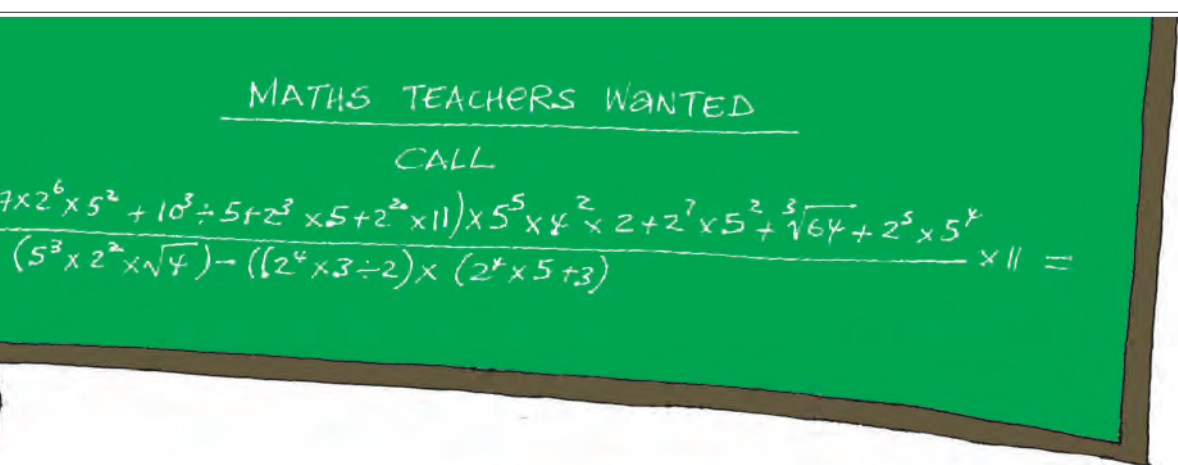 MATHS TEACHERS WANTED
CALL
7x2⁶x5² + 10³÷5+2³x5+2²⁰x11)x5⁵x4²x2+2⁷x5²+∛64+2⁵x5⁴
(5³x2²x√4)-((2⁴x3÷2)x(2⁴x5+3)
x11 =